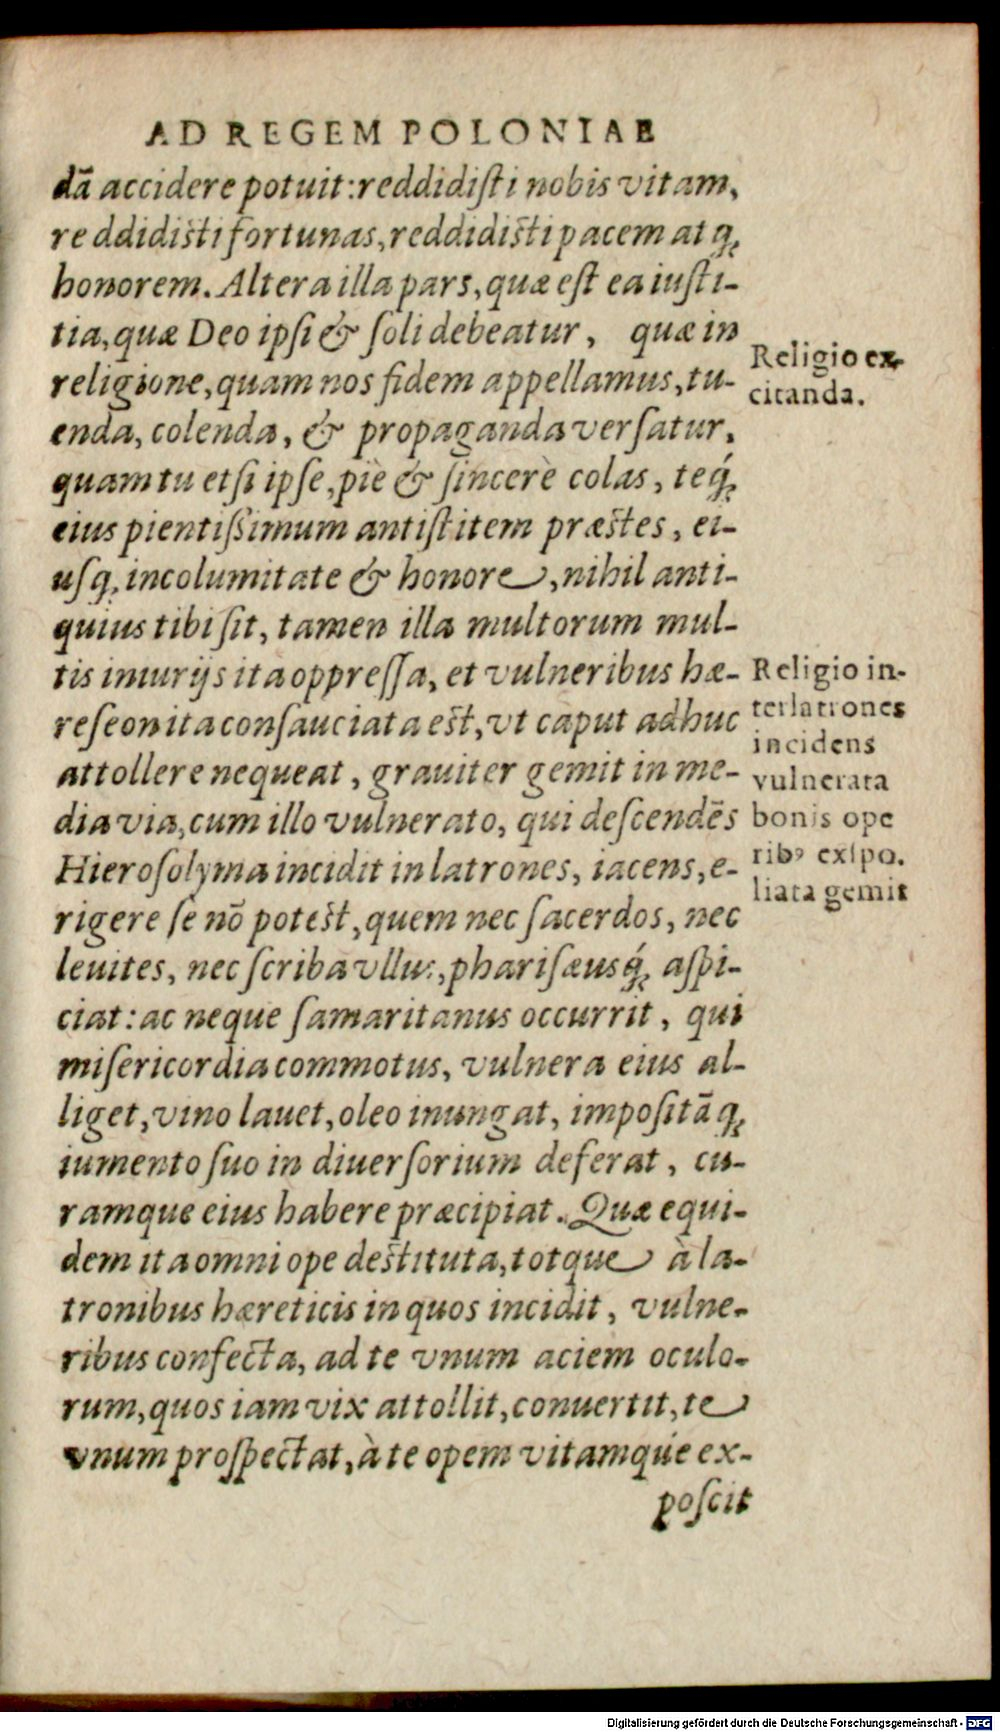 AD REGEM POLONIAE
dā accidere potuit: reddidiſti nobis vitam,
reddidiſti fortunas, reddidiſti pacem atq;
honorem. Altera illa pars, quæ eſt ea iuſti-
tia, quæ Deo ipſi & ſoli debeatur, quæ in
religione, quam nos fidem appellamus, tu-
enda, colenda, & propaganda verſatur,
quam tu etſi ipſe, piè & ſincerè colas, teq́;
eius pientiſsimum antiſtitem præſtes, ei-
uſq; incolumitate & honore, nihil anti-
quius tibi ſit, tamen illa multorum mul-
tis iniurijs ita oppreſſa, et vulneribus hæ-
reſeon ita conſauciata eſt, vt caput adhuc
attollere nequeat, grauiter gemit in me-
dia via, cum illo vulnerato, qui deſcendēs
Hieroſolyma incidit in latrones, iacens, e-
rigere ſe nō poteſt, quem nec ſacerdos, nec
leuites, nec ſcriba vllus, phariſæusq́; aſpi-
ciat: ac neque ſamaritanus occurrit, qui
miſericordia commotus, vulnera eius al-
liget, vino lauet, oleo inungat, impoſitāq;
iumento ſuo in diuerſorium deferat, cu-
ramque eius habere præcipiat. Quæ equi-
dem ita omni ope deſtituta, totque à la-
tronibus hæreticis in quos incidit, vulne-
ribus confecta, ad te vnum aciem oculo-
rum, quos iam vix attollit, conuertit, te
vnum proſpectat, à te opem vitamque ex-
poſcit
Religio ex-
citanda.
Religio in-
ter latrones
incidens
vulnerata
bonis ope
ribꝰ exſpo.
liata gemit
Digitalisierung gefördert durch die Deutsche Forschungsgemeinschaft - DFG